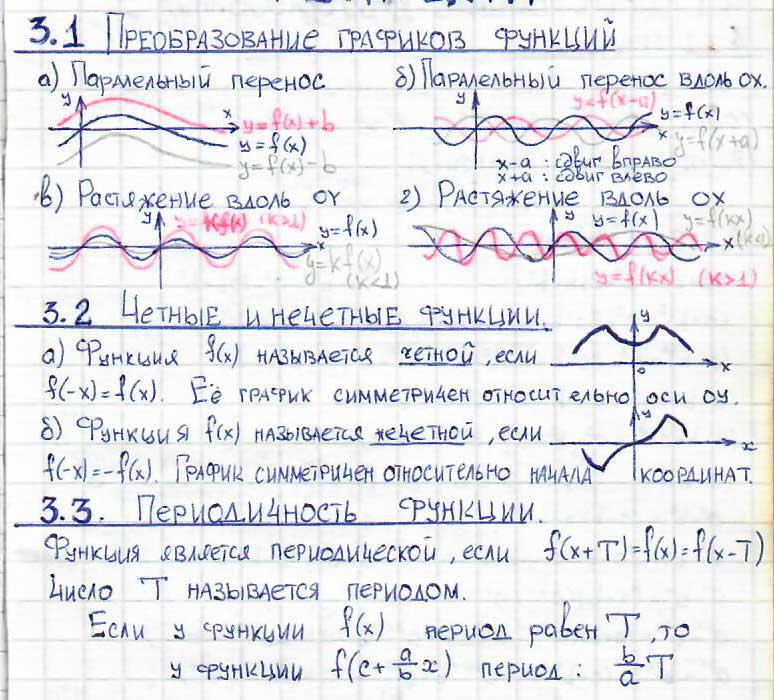 3.1 Преобразование графиков функций
а) Паралельный перенос
y
x
y=f(x)+b
y=f(x)
y=f(x)-b
б) Паралельный перенос вдоль OX.
y
y=f(x-a)
y=f(x)
x
y=f(x+a)
x-a : сдвиг вправо
x+a : сдвиг влево
в) Растяжение вдоль OY
y
y=kf(x) (k>1)
y=f(x)
x
y=kf(x)
(k<1)
г) Растяжение вдоль OX
y
y=f(x)
y=f(kx)
x
(k<1)
y=f(kx) (k>1)
3.2 Четные и нечетные функции.
а) Функция f(x) называется четной, если
f(-x)=f(x). Её график симметричен относительно оси OY.
y
x
0
б) Функция f(x) называется нечетной, если
f(-x)=-f(x). График симметричен относительно начала координат.
y
x
3.3. Периодичность функции.
Функция является периодической, если f(x+T)=f(x)=f(x-T)
Число T называется периодом.
Если у функции f(x) период равен T, то
у функции f(c+a/b x) период: b/a T